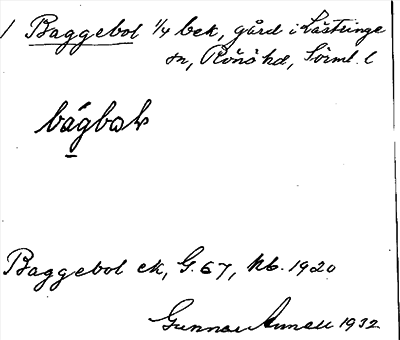 1 Baggebol 1/4 bek, gård i Lästringe
sn, Rönö hd, Sörml. l
Baggebol ek, G. 67, Nb. 1920
Gunnar 1932